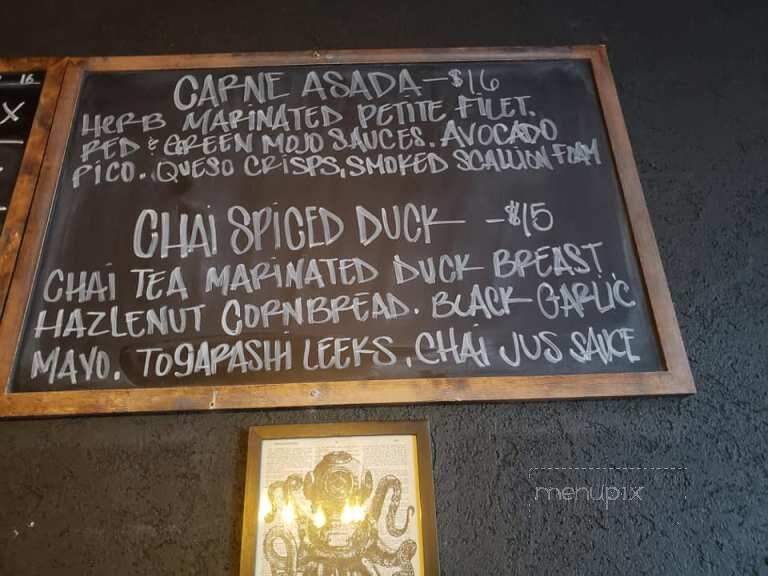 16
X
CARNE ASADA-$16
HERB MARINATED PETITE FILET.
RED & GREEN MOJO SAUCES. AVOCADO
PICO. QUESO CRISPS, SMOKED SCALLION FOAM
CHAI SPICED DUCK -$15
CHAI TEA MARINATED DUCK BREAST.
HAZLENUT CORNBREAD. BLACK GARLIC
MAYO. TOGARASHI LEEKS. CHAI JUS SAUCE
menupix